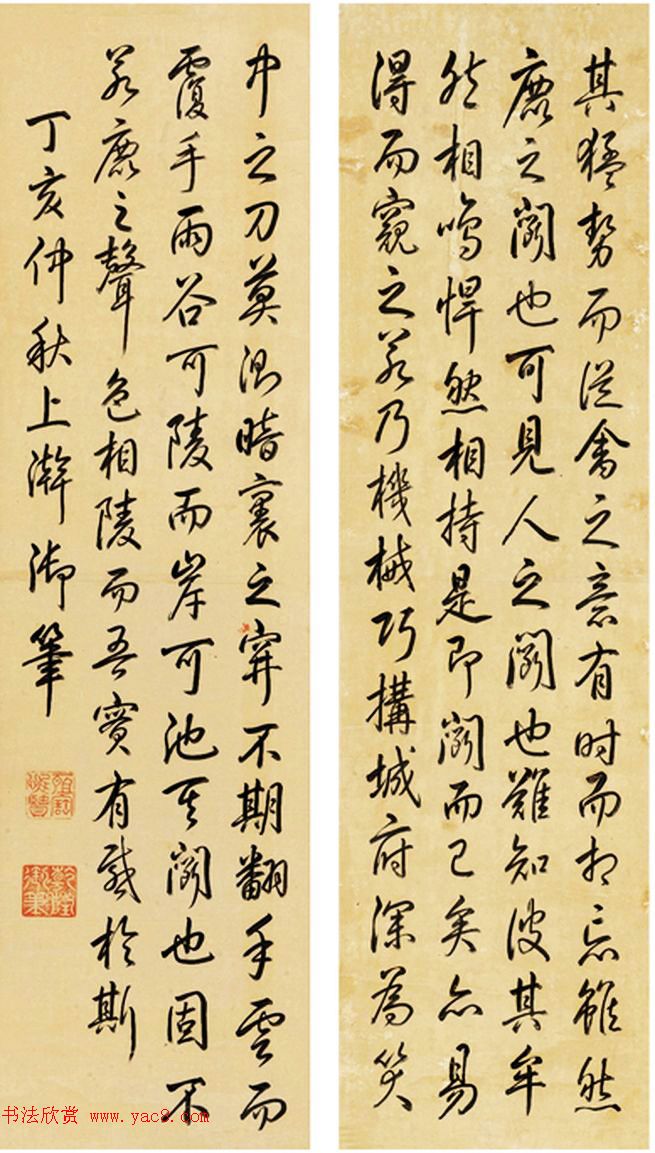 其猛勢而從禽之意有时而相忘雖然
鹿之鬪也可見人之鬪也難知彼其牟
然相鳴悍然相持是即鬪而已矣亦易
得而窺之若乃機械巧搆城府深為笑
中之刀莫測暗裏之穽不期翻手雲而
覆手雨谷可陵而岸可池其鬪也固不
若鹿之聲色相陵而吾實有感於斯
丁亥仲秋上澣御筆
乾隆御筆
书法欣赏 www.yac8.com